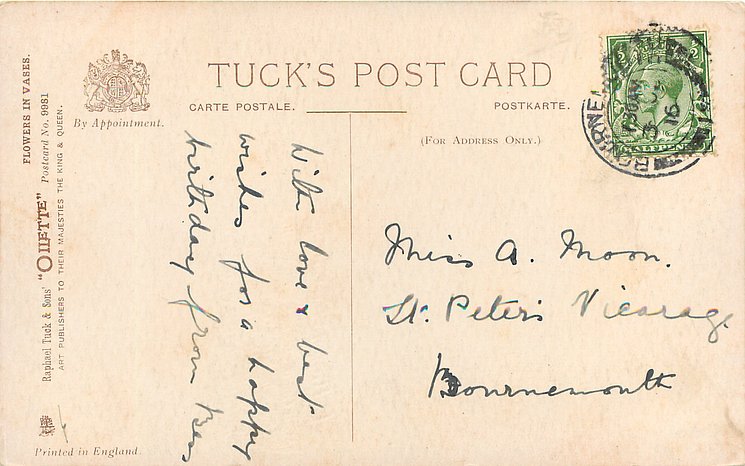 TUCK'S POST CARD
CARTE POSTALE.
POSTKARTE.
By Appointment.
(FOR ADDRESS ONLY.)
FLOWERS IN VASES.
Raphael Tuck & Sons' "OILETTE" Postcard No. 9981
ART PUBLISHERS TO THEIR MAJESTIES THE KING & QUEEN.
Printed in England.
With love & best
wishes for a happy
birthday from
Miss A. Moon.
St. Peter's Vicarage
Bournemouth
BOURNEMOUTH
7 30 AM
16
HALFPENNY